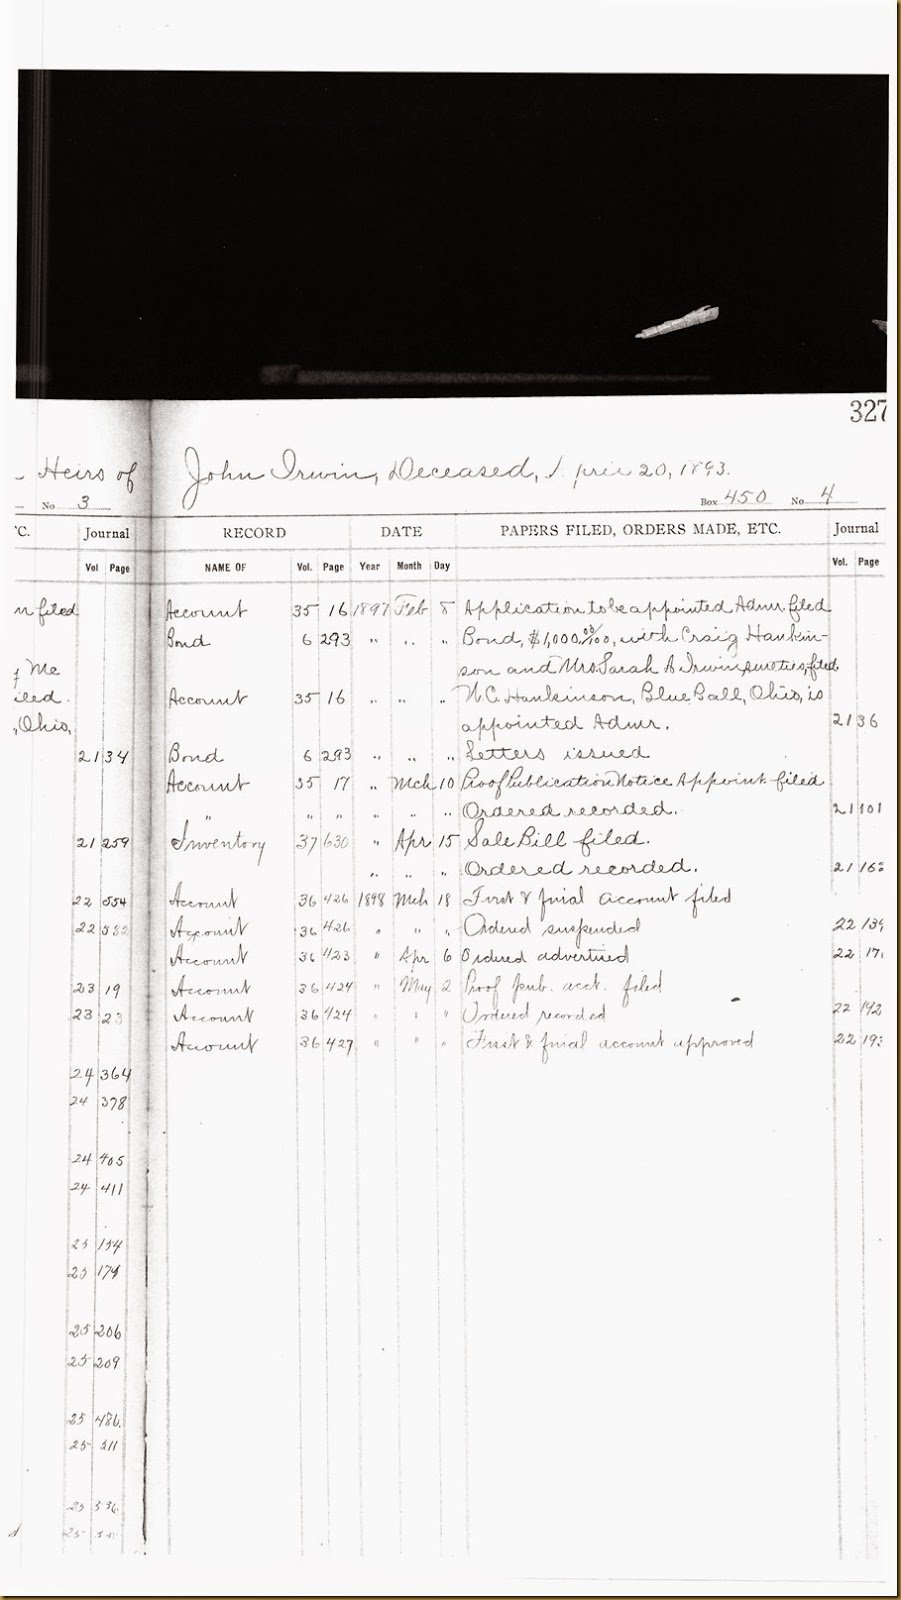 327
Heirs of John Irwin, Deceased, 20, 1893.
No 3 Box 450 No 4
C. Journal RECORD DATE PAPERS FILED, ORDERS MADE, ETC. Journal
Vol Page NAME OF Vol. Page Year Month Day Vol. Page
n filed Account 35 16 1897 Feb 8 Application to be appointed Admr filed
Bond 6 293 " " " Bond, $1,000 00/100, with Craig Hankin-
Mc son and Mrs. Sarah A Irwin sureties, filed
iled. Account 35 16 " " " W.C. Hankinson, Blue Ball, Ohio, is
, Ohio, appointed Admr. 21 36
21 34 Bond 6 293 " " " Letters issued
Account 35 17 " Mch 10 Proof Publication Notice Appoint. filed
" " " " " " Ordered recorded. 21 101
21 259 Inventory 37 630 " Apr 15 Sale Bill filed.
" " " Ordered recorded. 21 16
22 554 Account 36 426 1898 Mch 18 First & final account filed
22 582 Account 36 426 " " " Ordered suspended 22 139
Account 36 423 " Apr 6 Ordered advertised 22 17
23 19 Account 36 424 " May 2 Proof pub. acct. filed
23 23 Account 36 424 " " " Ordered recorded 22 192
Account 36 427 " " " First & final account approved 22 193
24 364
24 378
24 405
24 411
25 154
25 179
25 206
25 209
25 486.
25 511
25 536.
d 25